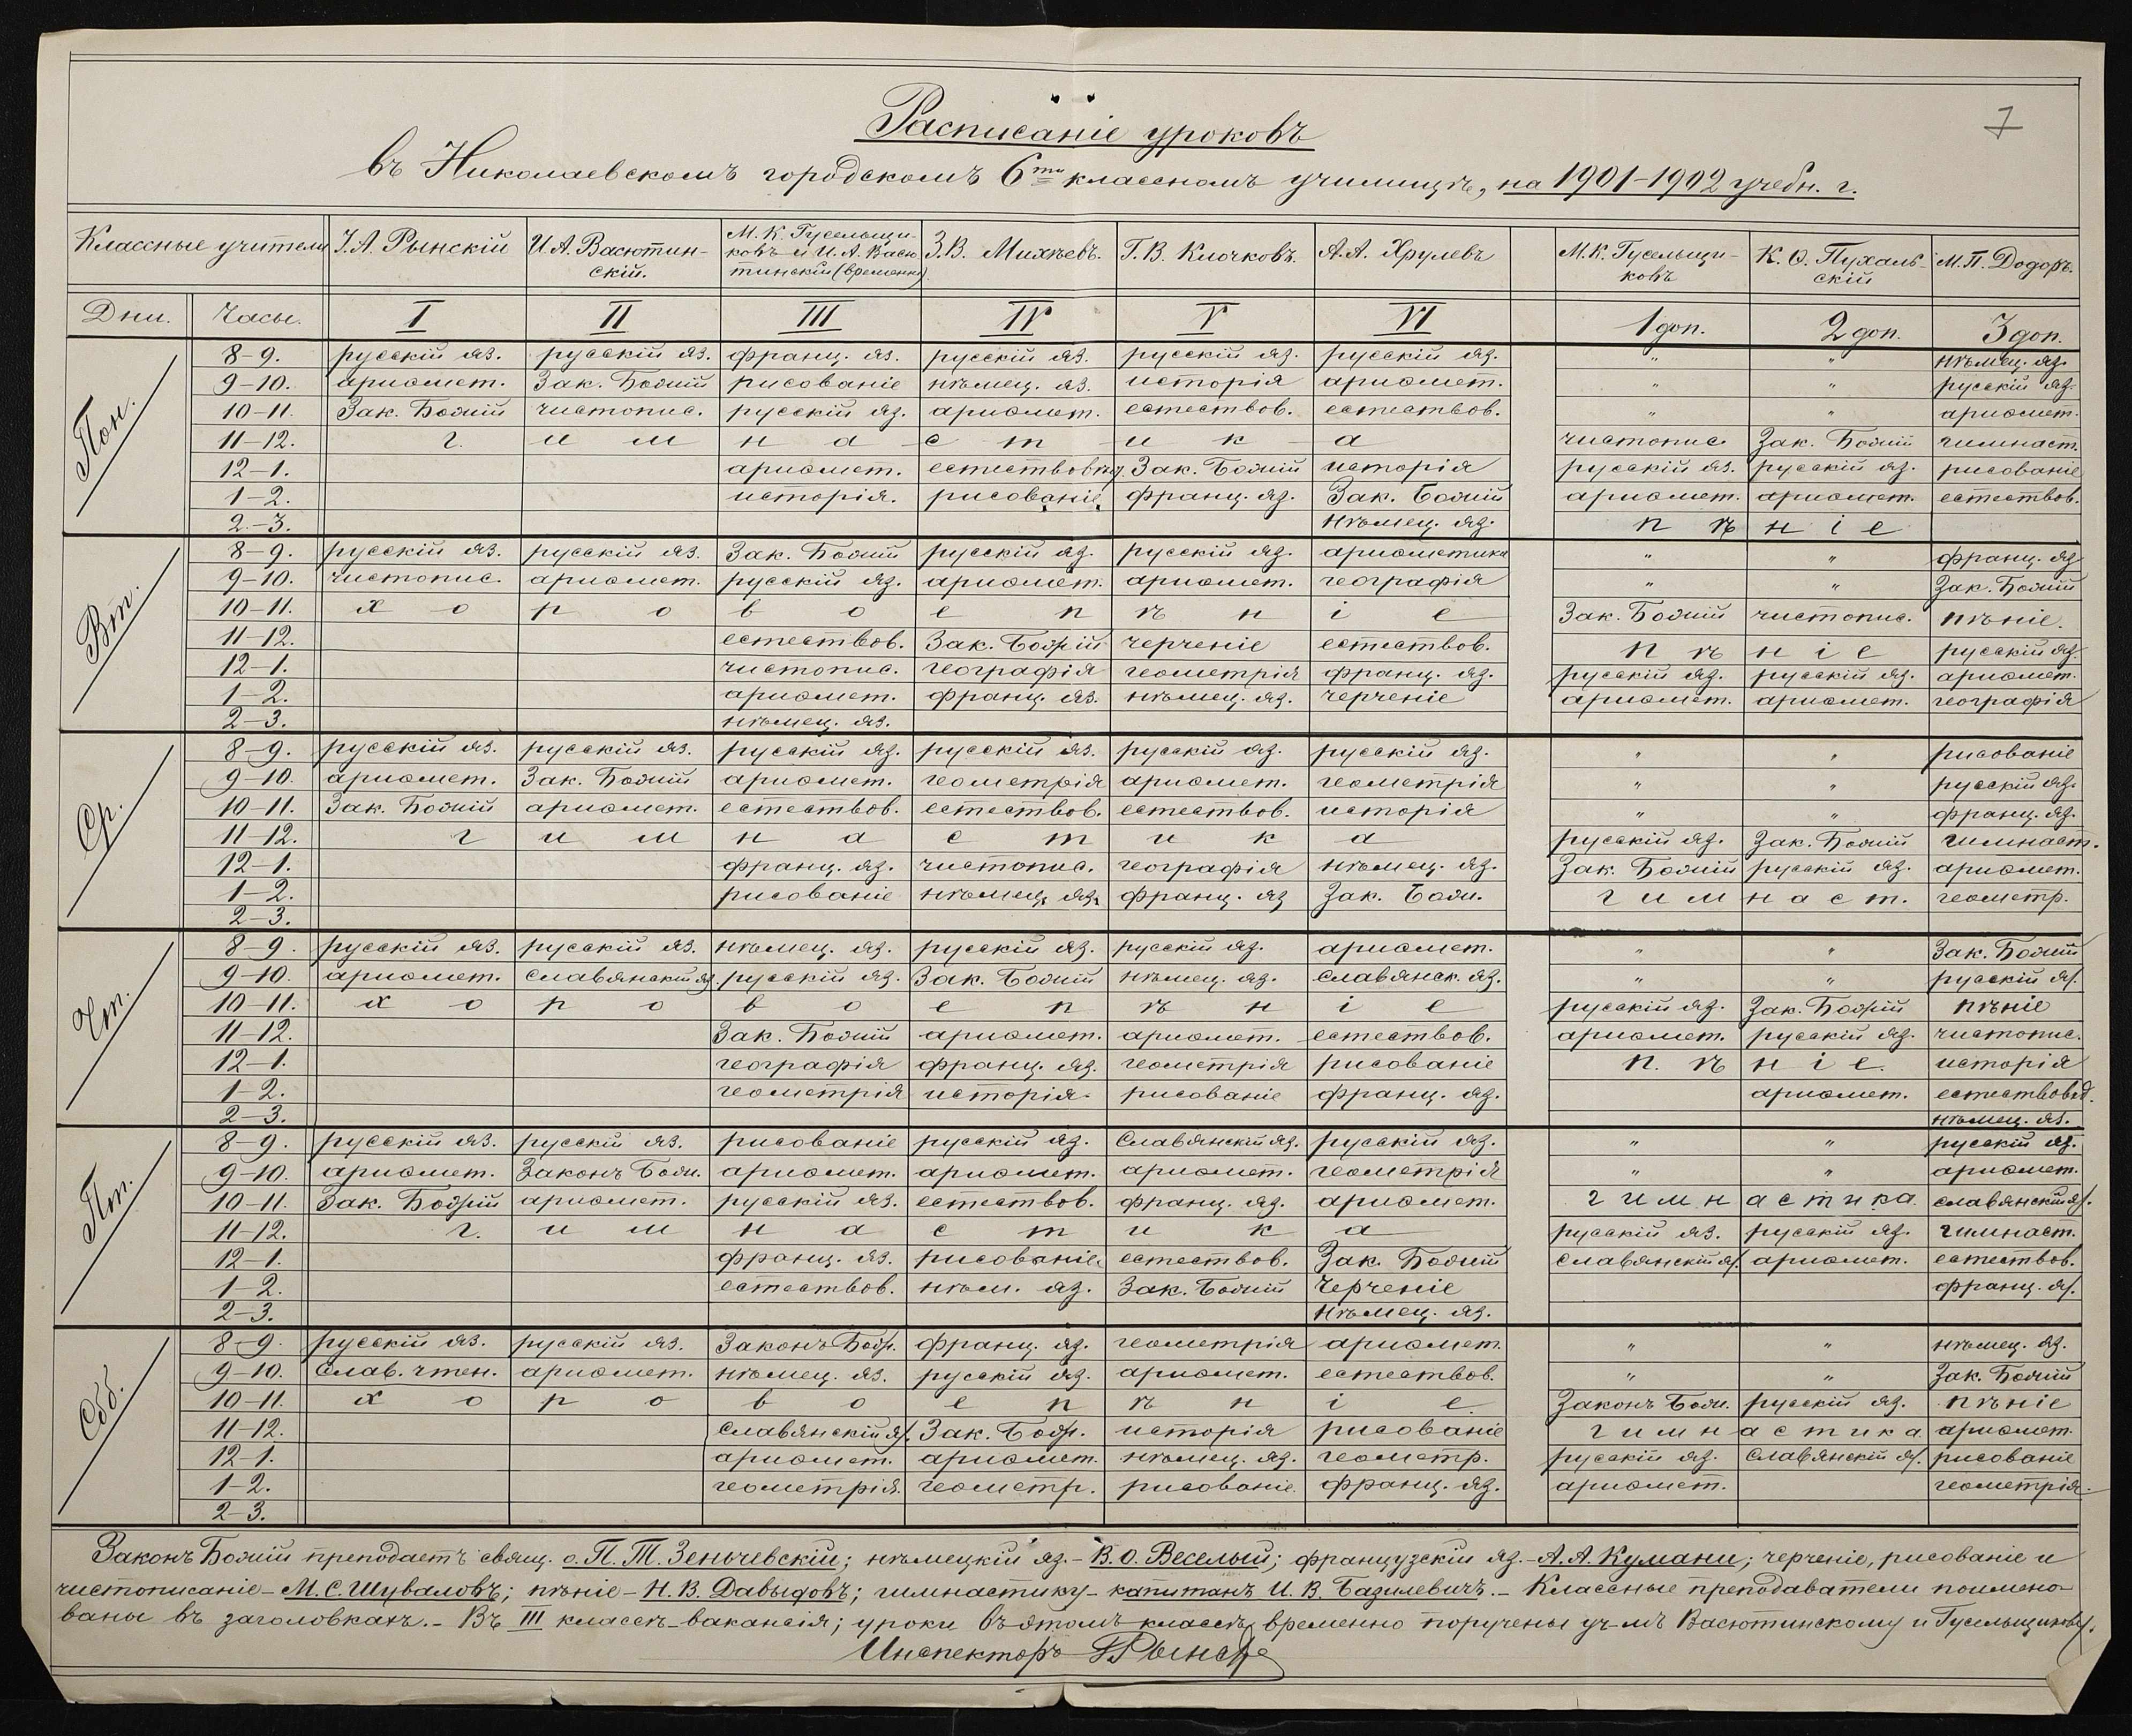 7
Расписаніе уроковъ
въ Николаевскомъ городскомъ 6ти классномъ училищѣ, на 1901–1902 учебн. г.
Классные учителя І.А. Рынскій И.А. Васютин-скій. М.К. Гусельщи-ковъ и И.А. Васю-тинскій (временно). З.В. Михѣевъ. Г.В. Клочковъ. А.А. Хрулевъ М.К. Гусельщи-ковъ К.О. Пухаль-скій М.П. Додоръ.
Дни. Часы. I II III IV V VI 1 доп. 2 доп. 3 доп.
Пон.
8–9. русскій яз. русскій яз. франц. яз. русскій яз. русскій яз. русскій яз. " " нѣмец. яз.
9–10. ариѳмет. Зак. Божій рисованіе нѣмец. яз. исторія ариѳмет. " " русскій яз.
10–11. Зак. Божій чистопис. русскій яз. ариѳмет. естествов. естествов. " " ариѳмет.
11–12. г и м н а с т и к а чистопис. Зак. Божій гимнаст.
12–1. ариѳмет. естествовѣд. Зак. Божій исторія русскій яз. русскій яз. рисованіе
1–2. исторія. рисованіе франц. яз. Зак. Божій ариѳмет. ариѳмет. естествов.
2–3. нѣмец. яз. п ѣ н і е
Вт.
8–9. русскій яз. русскій яз. Зак. Божій русскій яз. русскій яз. ариѳметика " " франц. яз
9–10. чистопис. ариѳмет. русскій яз. ариѳмет. ариѳмет. географія " " Зак. Божій
10–11. х о р о в о е п ѣ н і е Зак. Божій чистопис. пѣніе.
11–12. естествов. Зак. Божій черченіе естествов. п ѣ н і е русскій яз.
12–1. чистопис. географія геометрія франц. яз. русскій яз. русскій яз. ариѳмет.
1–2. ариѳмет. франц. яз. нѣмец. яз. черченіе ариѳмет. ариѳмет. географія
2–3. нѣмец. яз.
Ср.
8–9. русскій яз. русскій яз. русскій яз. русскій яз. русскій яз. русскій яз. " " рисованіе
9–10. ариѳмет. Зак. Божій ариѳмет. геометрія ариѳмет. геометрія " " русскій яз.
10–11. Зак. Божій ариѳмет. естествов. естествов. естествов. исторія " " франц. яз.
11–12. г и м н а с т и к а русскій яз. Зак. Божій гимнаст.
12–1. франц. яз. чистопис. географія нѣмец. яз. Зак. Божій русскій яз. ариѳмет.
1–2. рисованіе нѣмец. яз. франц. яз Зак. Бож. г и м н а с т. геометр.
2–3.
Чт.
8–9. русскій яз. русскій яз. нѣмец. яз. русскій яз. русскій яз. ариѳмет. " " Зак. Божій
9–10. ариѳмет. славянскій яз. русскій яз. Зак. Божій нѣмец. яз. славянск. яз. " " русскій яз.
10–11. х о р о в о е п ѣ н і е русскій яз. Зак. Божій пѣніе
11–12. Зак. Божій ариѳмет. ариѳмет. естествов. ариѳмет. русскій яз. чистопис.
12–1. географія франц. яз. геометрія рисованіе п. ѣ н і е. исторія
1–2. геометрія исторія. рисованіе франц. яз. ариѳмет. естествовѣд.
2–3. нѣмец. яз.
Пт.
8–9. русскій яз. русскій яз. рисованіе русскій яз. Славянскій яз. русскій яз. " " русскій яз.
9–10. ариѳмет. Законъ Бож. ариѳмет. ариѳмет. ариѳмет. геометрія " " ариѳмет.
10–11. Зак. Божій ариѳмет. русскій яз. естествов. франц. яз. ариѳмет. г и м н а с т и к а. славянскій яз.
11–12. г. и м н а с т и к а русскій яз. русскій яз. гимнаст.
12–1. франц. яз. рисованіе. естествов. Зак. Божій Славянскій яз. ариѳмет. естествов.
1–2. естествов. нѣм. яз. Зак. Божій Черченіе франц. яз.
2–3. нѣмец. яз.
Сбб.
8–9. русскій яз. русскій яз. Законъ Бож. франц. яз. геометрія ариѳмет. " " нѣмец. яз.
9–10. Слав. чтен. ариѳмет. нѣмец. яз. русскій яз. ариѳмет. естествов. " " Зак. Божій
10–11. х о р о в о е п ѣ н і е. Законъ Бож. русскій яз. пѣніе
11–12. Славянскій яз. Зак. Бож. исторія рисованіе г и м н а с т и к а ариѳмет.
12–1. ариѳмет. ариѳмет. нѣмец. яз. геометр. русскій яз. Славянскій яз. рисованіе
1–2. геометрія. геометр. рисованіе. франц. яз. ариѳмет. геометрія.
2–3.
Законъ Божій преподаетъ свящ. о. П. Т. Зеньчевскій; нѣмецкій яз.– В. О. Веселый; французскій яз.– А. А. Кумани; черченіе, рисованіе и
чистописаніе– М. С. Шуваловъ; пѣніе– Н. В. Давыдовъ; гимнастику– капитанъ И. В. Базилевичъ.– Классные преподаватели поимено-
ваны въ заголовкахъ.– Въ III классѣ–вакансія; уроки въ этомъ классѣ временно поручены уч–лмъ Васютинскому и Гусельщикову.
Инспекторъ Рынскій